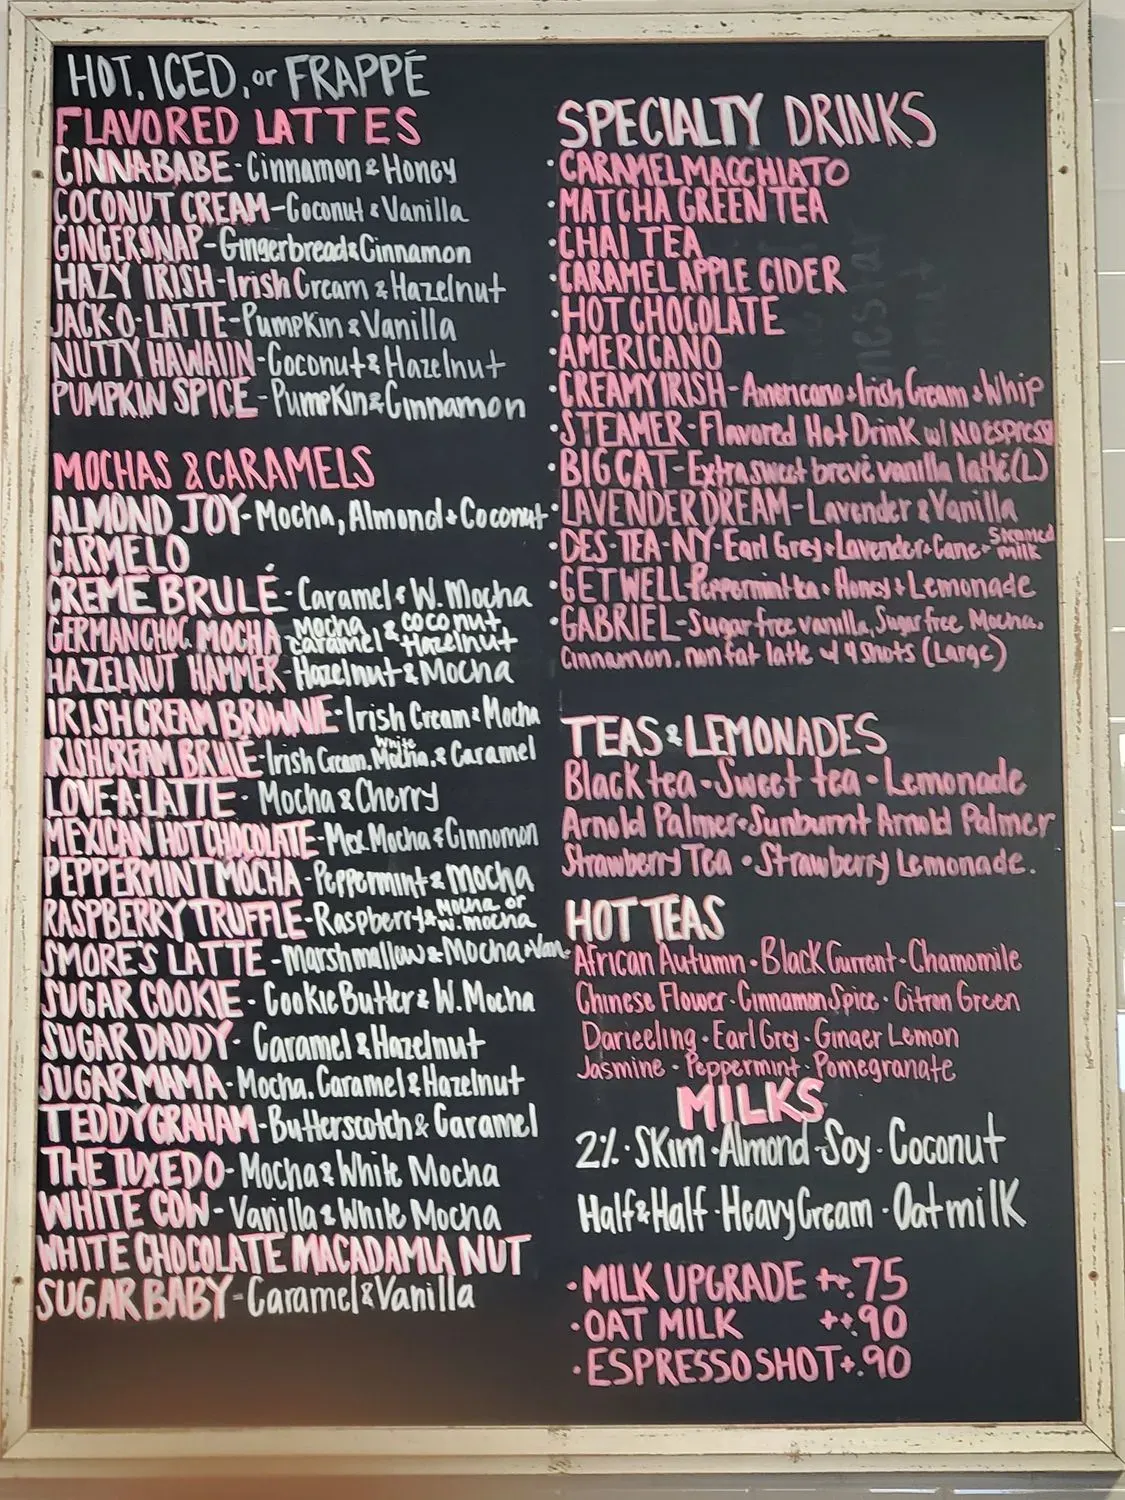 HOT, ICED, or FRAPPÉ
FLAVORED LATTES
CINNABABE - Cinnamon & Honey
COCONUT CREAM - Coconut & Vanilla
GINGERSNAP - Gingerbread & Cinnamon
HAZY IRISH - Irish Cream & Hazelnut
JACK-O-LATTE - Pumpkin & Vanilla
NUTTY HAWAIIN - Coconut & Hazelnut
PUMPKIN SPICE - Pumpkin & Cinnamon
MOCHAS & CARAMELS
ALMOND JOY - Mocha, Almond + Coconut
CARMELO
CREME BRULÉ - Caramel & W. Mocha
GERMAN CHOC. MOCHA - Mocha & coconut
caramel & Hazelnut
HAZELNUT HAMMER - Hazelnut & Mocha
IRISH CREAM BROWNIE - Irish Cream & Mocha
IRISH CREAM BRULÉ - Irish Cream. White Mocha. & Caramel
LOVE-A-LATTE - Mocha & Cherry
MEXICAN HOT CHOCOLATE - Mex Mocha & Cinnomon
PEPPERMINT MOCHA - Peppermint & mocha
RASPBERRY TRUFFLE - Raspberry & Mocha or
w. mocha
SMORE'S LATTE - Marshmallow & Mocha + Van.
SUGAR COOKIE - Cookie Butter & W. Mocha
SUGAR DADDY - Caramel & Hazelnut
SUGAR MAMA - Mocha. Caramel & Hazelnut
TEDDY GRAHAM - Butterscotch & Caramel
THE TUXEDO - Mocha & White Mocha
WHITE COW - Vanilla & White Mocha
WHITE CHOCOLATE MACADAMIA NUT
SUGAR BABY - Caramel & Vanilla
SPECIALTY DRINKS
· CARAMEL MACCHIATO
· MATCHA GREEN TEA
· CHAI TEA
· CARAMEL APPLE CIDER
· HOT CHOCOLATE
· AMERICANO
· CREAMY IRISH - Americano + Irish Cream + Whip
· STEAMER - Flavored Hot Drink w/ NO ESPRESSO
· BIG CAT - Extra sweet brevé vanilla latté (L)
· LAVENDER DREAM - Lavender & Vanilla
· DES-TEA-NY - Earl Grey + Lavender + Cane + Steamed milk
· GET WELL - Peppermint tea + Honey + Lemonade
· GABRIEL - Sugar free vanilla, Sugar free Mocha.
cinnamon. nonfat latte w/ 4 shots (Large)
TEAS & LEMONADES
Black tea · Sweet tea · Lemonade
Arnold Palmer · Sunburnt Arnold Palmer
Strawberry Tea · Strawberry Lemonade.
HOT TEAS
African Autumn · Black Current · Chamomile
Chinese Flower · Cinnamon Spice · Citron Green
Darjeeling · Earl Grey · Ginger Lemon
Jasmine · Peppermint · Pomegranate
MILKS
2% · Skim · Almond · Soy · Coconut
Half & Half · Heavy Cream · Oatmilk
· MILK UPGRADE ++ .75
· OAT MILK ++ .90
· ESPRESSO SHOT + .90